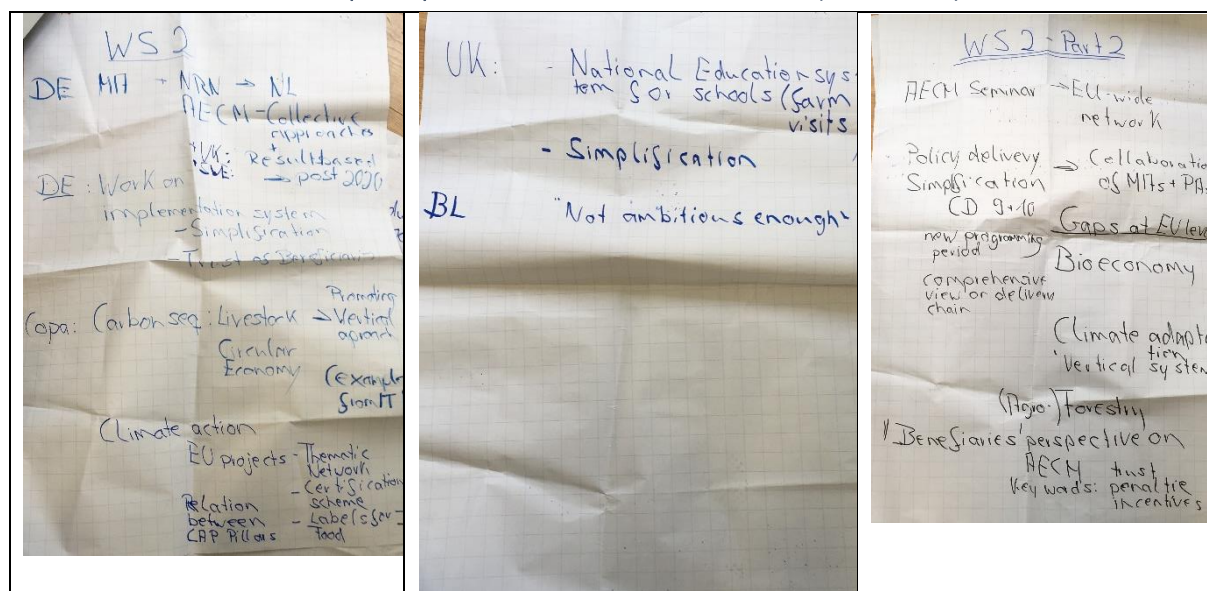 WS 2
DE MA + NRN → NL
AECM - Collective
approaches
+
UK: Resultbased
→ post 2020
DE: Work on
implementation system
- Simplification
- Trust of Beneficiaries
Copa: Carbon seq: Livestock → Promoting
Vertical
aproach
Circular
Economy
(example
from IT
Climate action
EU projects - Thematic
Network
- Certification
scheme
Relation
between
CAP Pillars
- Labels for
Food
UK: - National Education sys
tem for schools (farm
visits
- Simplification
BL "Not ambitious enough"
WS 2 - Part 2
AECM Seminar → EU-wide
network
Policy delivery → Collaboratio
Simplification of MAs + PAs
CD 9+10
new programming
period
comprehensive
view or delivery
chain
Gaps at EU leve
Bioeconomy
Climate adapta
tion
"Vertical system
(Agro-)Forestry
"Benefiaries' perspective on
AECM trust
Key words: penaltie
incentives